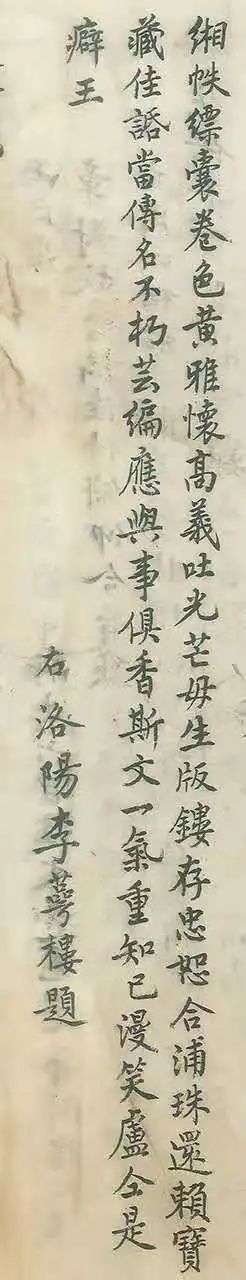 緗帙縹囊卷色黃雅懷高義吐光芒毋生版鏤存忠恕合浦珠還賴寶
藏佳話當傳名不朽芸編應與事俱香斯文一氣重知己漫笑盧仝是
癖王
右洛陽李萼樓題